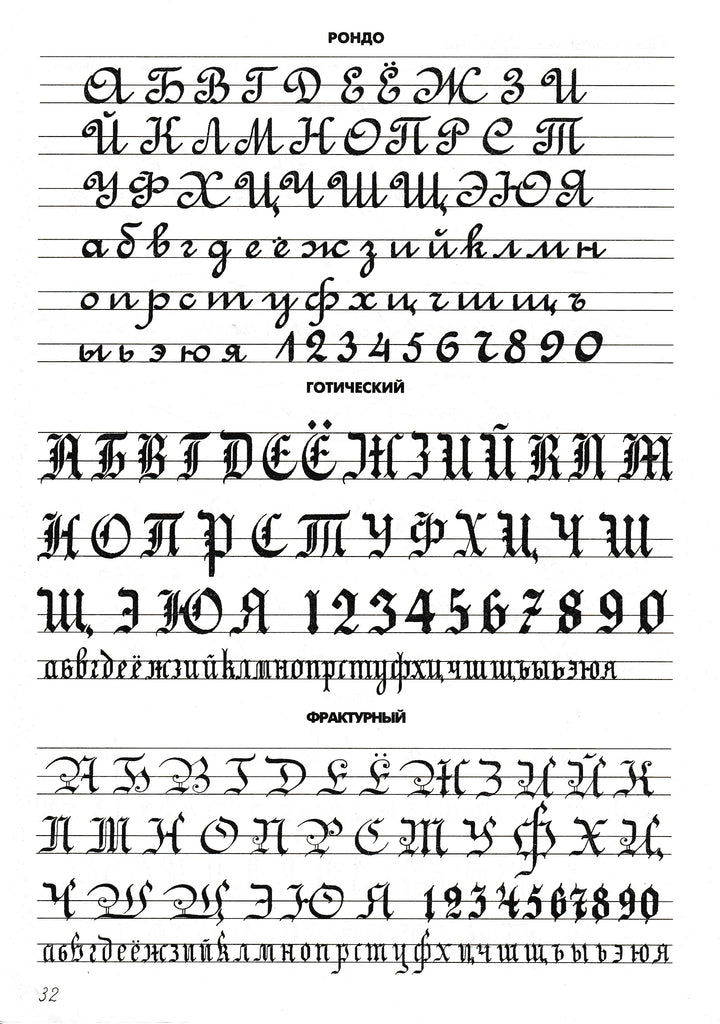 РОНДО
А Б В Г Д Е Ё Ж З И
Й К Л М Н О П Р С Т
У Ф Х Ц Ч Ш Щ Э Ю Я
а б в г д е ё ж з и й к л м н
о п р с т у ф х ц ч ш щ ъ
ы ь э ю я 1 2 3 4 5 6 7 8 9 0
ГОТИЧЕСКИЙ
А Б В Г Д Е Ё Ж З И Й К Л М
Н О П Р С Т У Ф Х Ц Ч Ш
Щ Э Ю Я 1 2 3 4 5 6 7 8 9 0
абвгдеёжзийклмнопрстуфхцчшщъыьэюя
ФРАКТУРНЫЙ
А Б В Г Д Е Ё Ж З И Й К
Л М Н О П Р С Т У Ф Х Ц
Ч Ш Щ Э Ю Я 1 2 3 4 5 6 7 8 9 0
абвгдеёжзийклмнопрстуфхцчшщъыьэюя
32